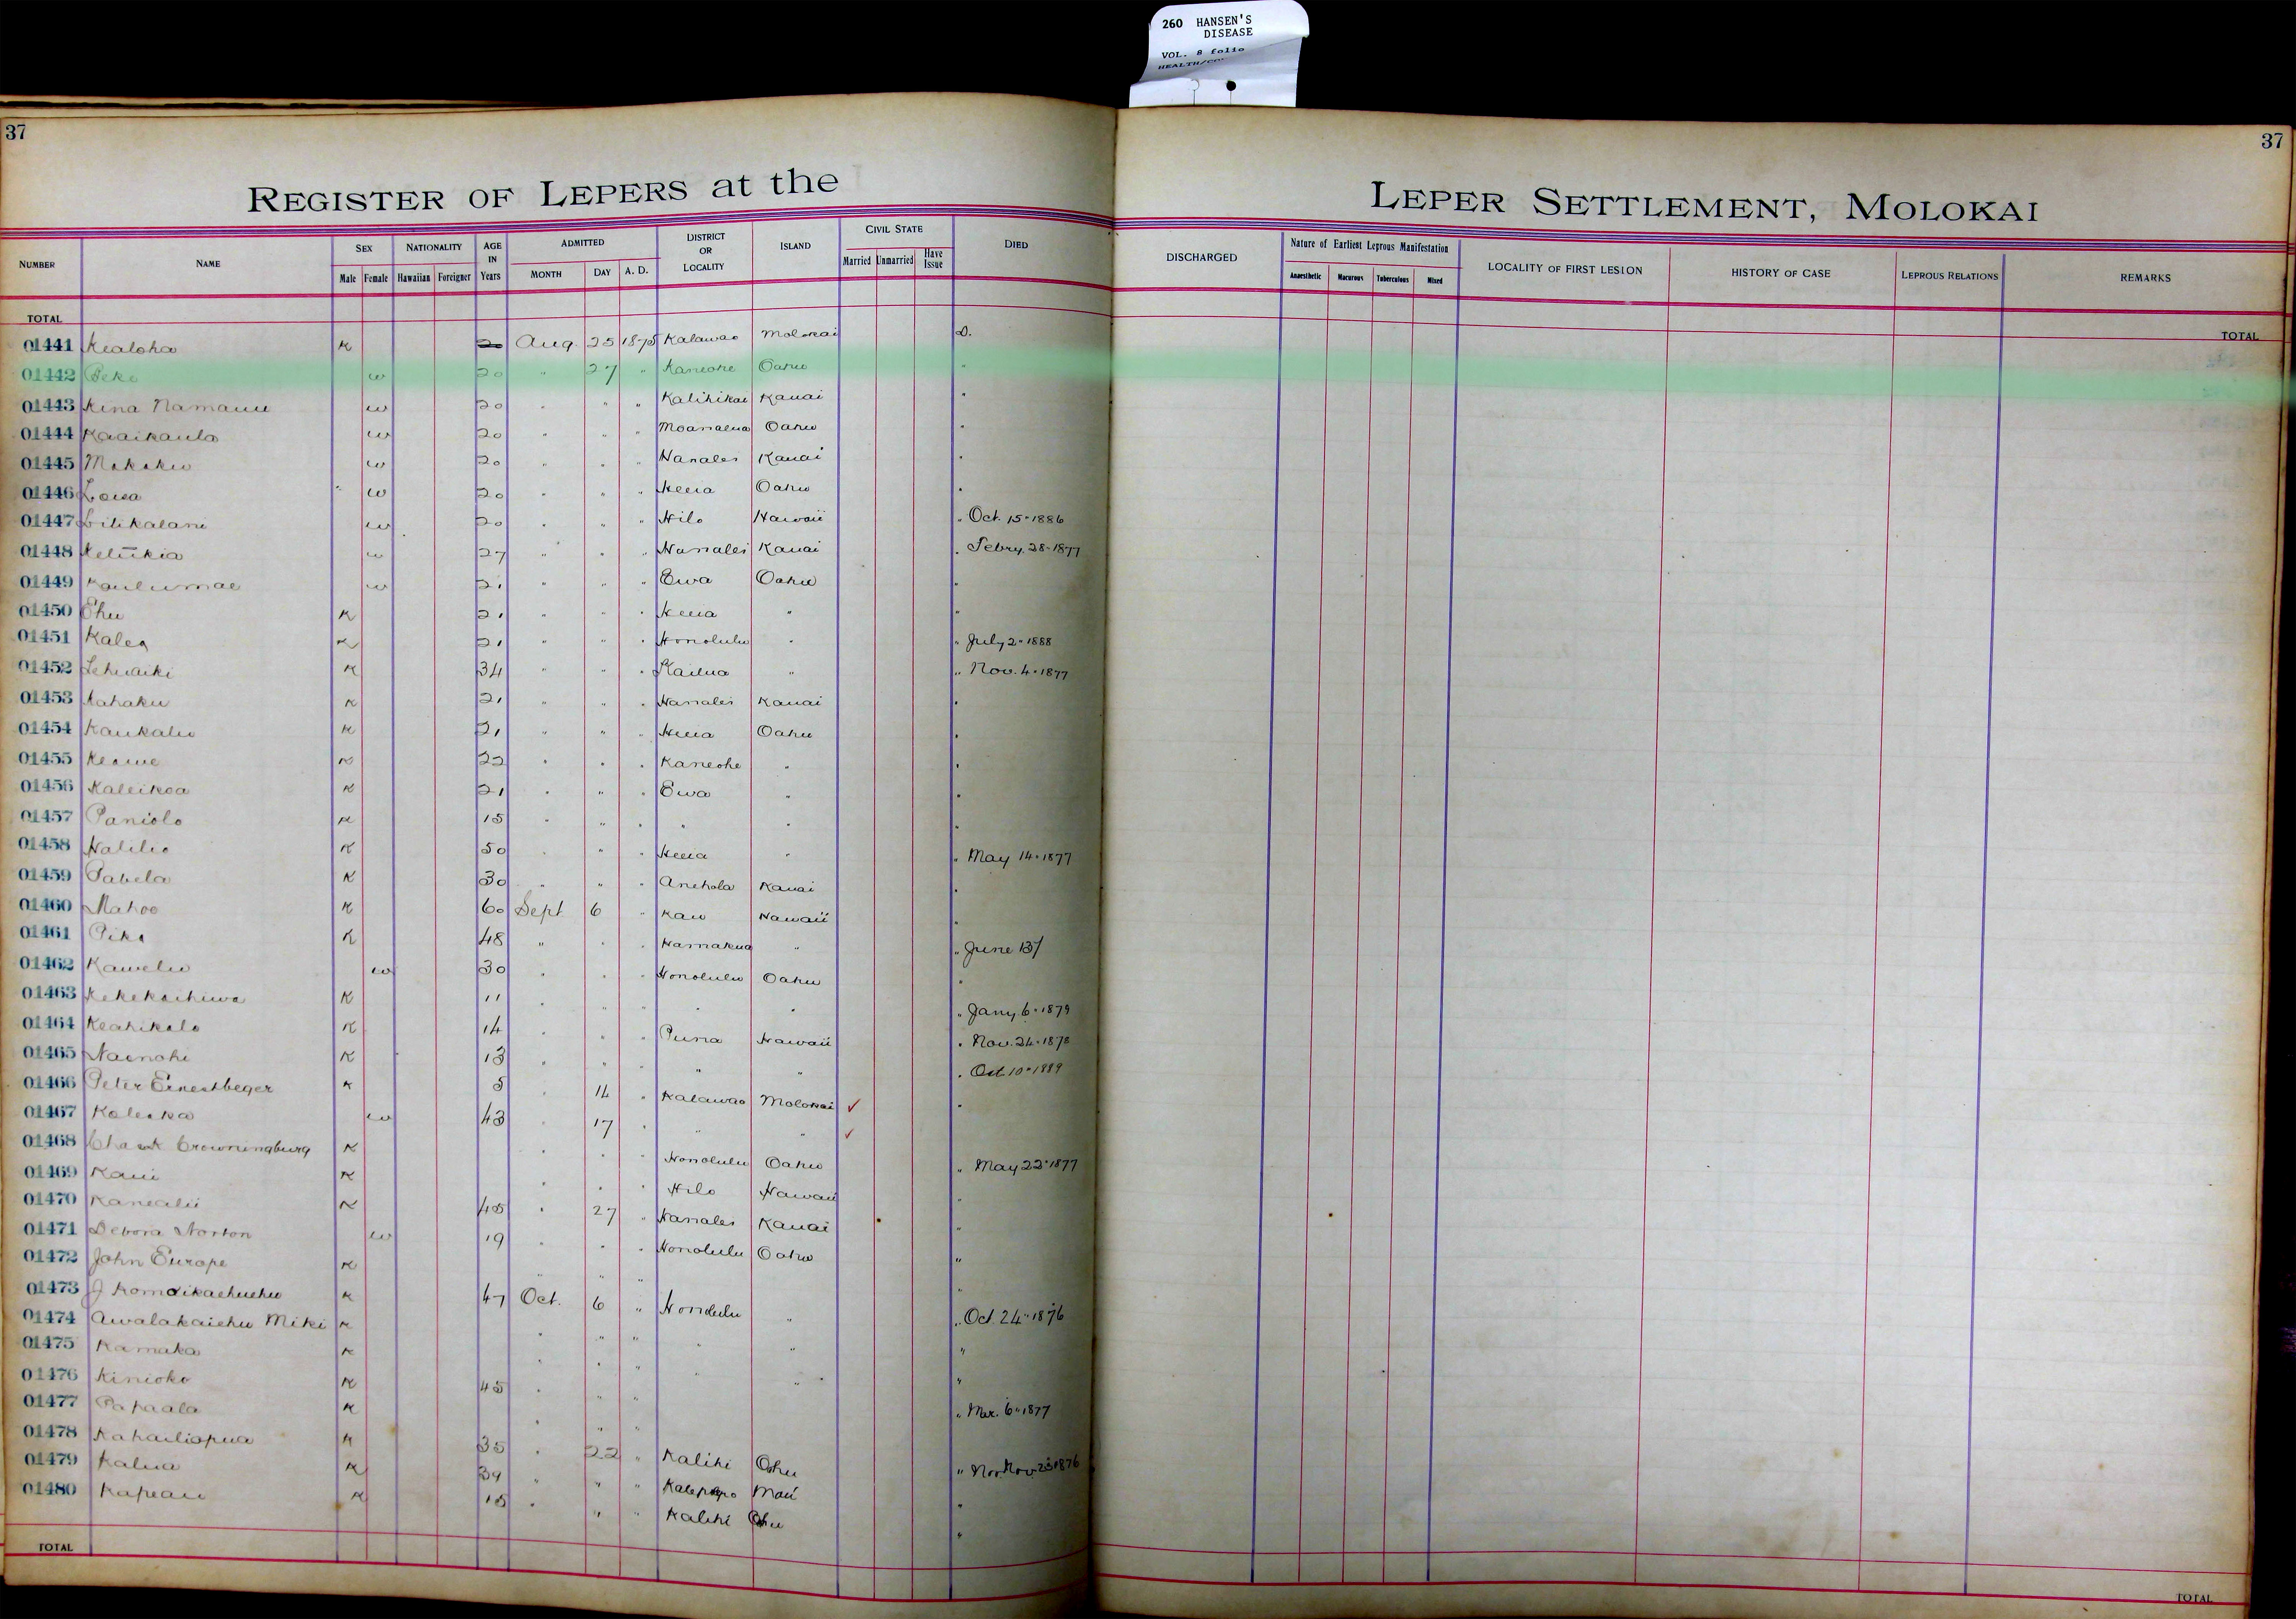 260 HANSEN'S
DISEASE
VOL. 8 folio
37
37
REGISTER OF LEPERS at the
LEPER SETTLEMENT, MOLOKAI
NUMBER NAME SEX Male Female NATIONALITY Hawaiian Foreigner AGE IN Years ADMITTED MONTH DAY A. D. DISTRICT OR LOCALITY ISLAND CIVIL STATE Married Unmarried Have Issue DIED
DISCHARGED Nature of Earliest Leprous Manifestation Anaesthetic Macurous Tuberculous Mixed LOCALITY OF FIRST LESION HISTORY OF CASE LEPROUS RELATIONS REMARKS
TOTAL TOTAL
01441 Kealoha K 20 Aug. 25 1875 Kalawao Molokai D.
01442 Peke w 20 " 27 " Kaneohe Oahu "
01443 Kina Namauu w 20 " " " Kalihikai Kauai "
01444 Kaaikaula w 20 " " " Moanalua Oahu "
01445 w 20 " " " Hanalei Kauai "
01446 Loisa w 20 " " " Heeia Oahu "
01447 Lilikalani w 20 " " " Hilo Hawaii " Oct. 15" 1886
01448 Keliikia w 27 " " " Hanalei Kauai " Febry. 28" 1877
01449 Kaulumae w 21 " " " Ewa Oahu "
01450 Ehu K 21 " " " Heeia " "
01451 Kalea K 21 " " " Honolulu " " July 2" 1888
01452 Lehuaiki K 34 " " " Kailua " " Nov. 4" 1877
01453 Kahaku K 21 " " " Hanalei Kauai "
01454 Kaukaliu K 21 " " " Heeia Oahu "
01455 Keawe K 22 " " " Kaneohe " "
01456 Kaleikoa K 21 " " " Ewa " "
01457 Paniolo K 15 " " " " " "
01458 Halilio K 50 " " " Heeia " " May 14" 1877
01459 Pabela K 30 " " " Anehola Kauai "
01460 Mahoe K 60 Sept 6 " Kau Hawaii "
01461 Pika K 48 " " " Hamakua " " June 13/
01462 Kawelu w 30 " " " Honolulu Oahu "
01463 Kekekachiwa K 11 " " " " " " Jany. 6" 1879
01464 Keahikolo K 14 " " " Puna Hawaii " Nov. 24" 1878
01465 Nainohi K 13 " " " " " " Oct 10" 1889
01466 Peter Ernestbeger K 5 " 14 " Kalawao Molokai ✓ "
01467 Kaleika w 43 " 17 " " " ✓
01468 Crowningburg K " " " Honolulu Oahu " May 22" 1877
01469 Kaui K " " " Hilo Hawaii "
01470 Kanealii K 45 " 27 " Hanalei Kauai "
01471 Debora Norton w 19 " " " Honolulu Oahu "
01472 John Europe K " " " "
01473 J Komoikaehuehu K 47 Oct. 6 " Honolulu " " Oct. 24" 1876
01474 Awalakaiehu Miki K " " " " " "
01475 Kamaka K " " " " " "
01476 Kinioko K 45 " " " "
01477 Papaala K " " " " Mar. 6" 1877
01478 Kahailiopua K 35 " 22 " Kalihi Oahu " Nov. 23" 1876
01479 Kalua K 39 " " " Kalepolepo Maui "
01480 Kapeau K 15 " " " Kalihi Oahu "
TOTAL TOTAL